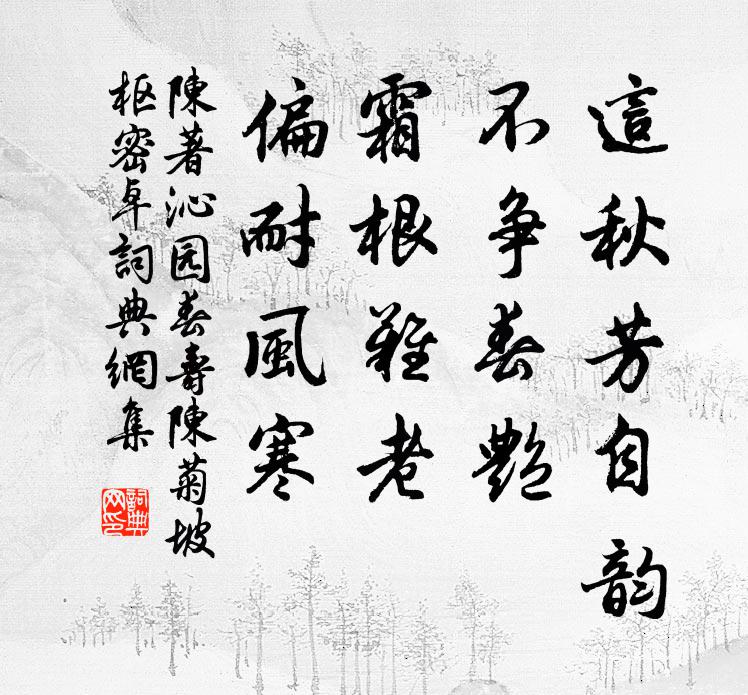 這秋芳自韵
不争春艷
霜根難老
偏耐風寒
陳著沁园春壽陳菊坡
枢密卓詞典網集
詞典
网印